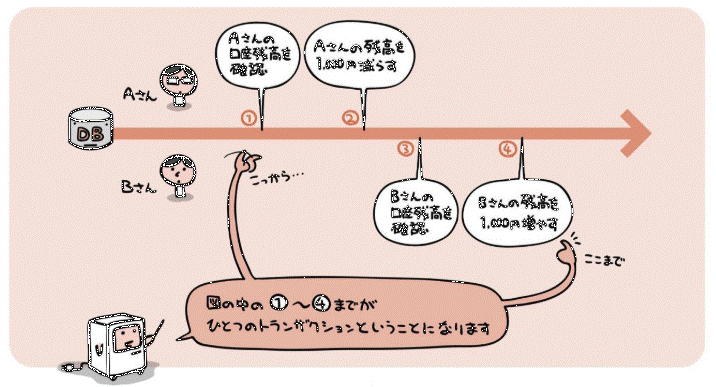 Aさんの
口座残高を
確認
Aさんの残高を
1,000円減らす
Aさん
①
②
DB
③
④
Bさん
こっから…
Bさんの
口座残高を
確認
Bさんの残高を
1,000円増やす
ここまで
図の中の①〜④までが
ひとつのトランザクションということになります